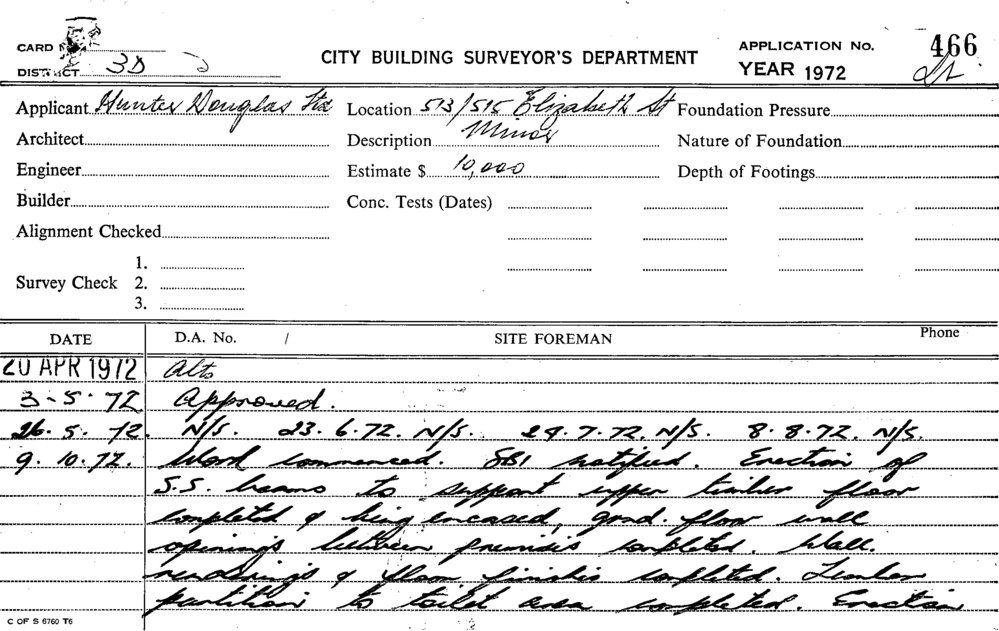 CITY BUILDING SURVEYOR'S DEPARTMENT
APPLICATION No. 466
YEAR 1972
CARD
DISTRICT 3D
Applicant Hunter Douglas Ltd Location 513/515 Elizabeth St Foundation Pressure
Architect Description Minor Nature of Foundation
Engineer Estimate $ 10,000 Depth of Footings
Builder Conc. Tests (Dates)
Alignment Checked
1.
Survey Check 2.
3.
DATE D.A. No. / SITE FOREMAN Phone
20 APR 1972 Alts
3-5-72 Approved.
26.5.72. N/S. 23.6.72. N/S. 24.7.72. N/S. 8.8.72. N/S.
9.10.72. Work commenced. SBI notified. Erection of
S.S. beams to support upper timber floor
completed & being encased, grnd. floor wall
openings between premises completed. Wall.
renderings & floor finishes completed. Timber
partition to toilet area completed. Erection
C OF S 6760 T6